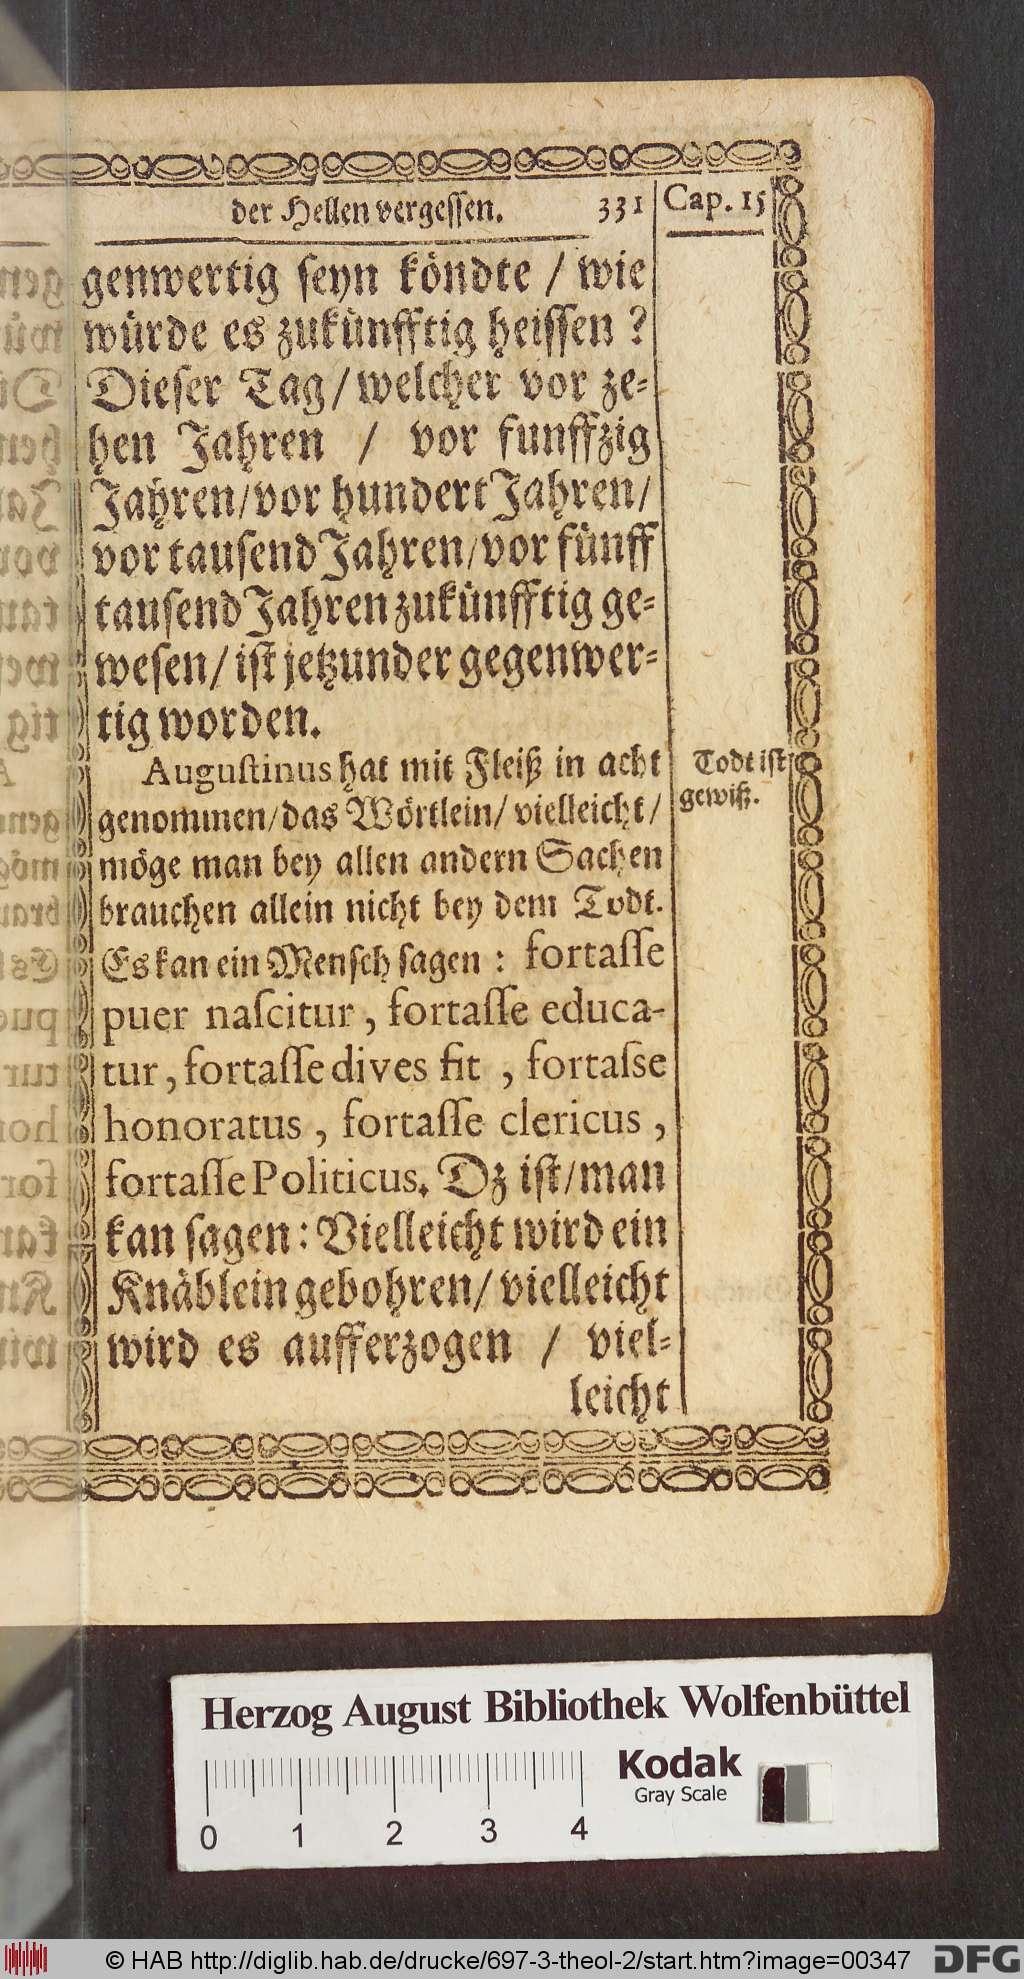 der Hellen vergessen. 331 Cap. 15
genwertig seyn köndte / wie
würde es zukünfftig heissen ?
Dieser Tag / welcher vor ze-
hen Jahren / vor funffzig
Jahren / vor hundert Jahren /
vor tausend Jahren / vor fünff
tausend Jahren zukünfftig ge-
wesen / ist jetzunder gegenwer-
tig worden.
Augustinus hat mit Fleiß in acht
genommen / das Wörtlein / vielleicht /
möge man bey allen andern Sachen
brauchen allein nicht bey dem Todt.
Todt ist
gewiß.
Es kan ein Mensch sagen : fortasse
puer nascitur, fortasse educa-
tur, fortasse dives fit , fortasse
honoratus , fortasse clericus ,
fortasse Politicus. Dz ist / man
kan sagen : Vielleicht wird ein
Knäblein gebohren / vielleicht
wird es aufferzogen / viel-
leicht
Herzog August Bibliothek Wolfenbüttel
Kodak
Gray Scale
0 1 2 3 4
© HAB http://diglib.hab.de/drucke/697-3-theol-2/start.htm?image=00347
DFG